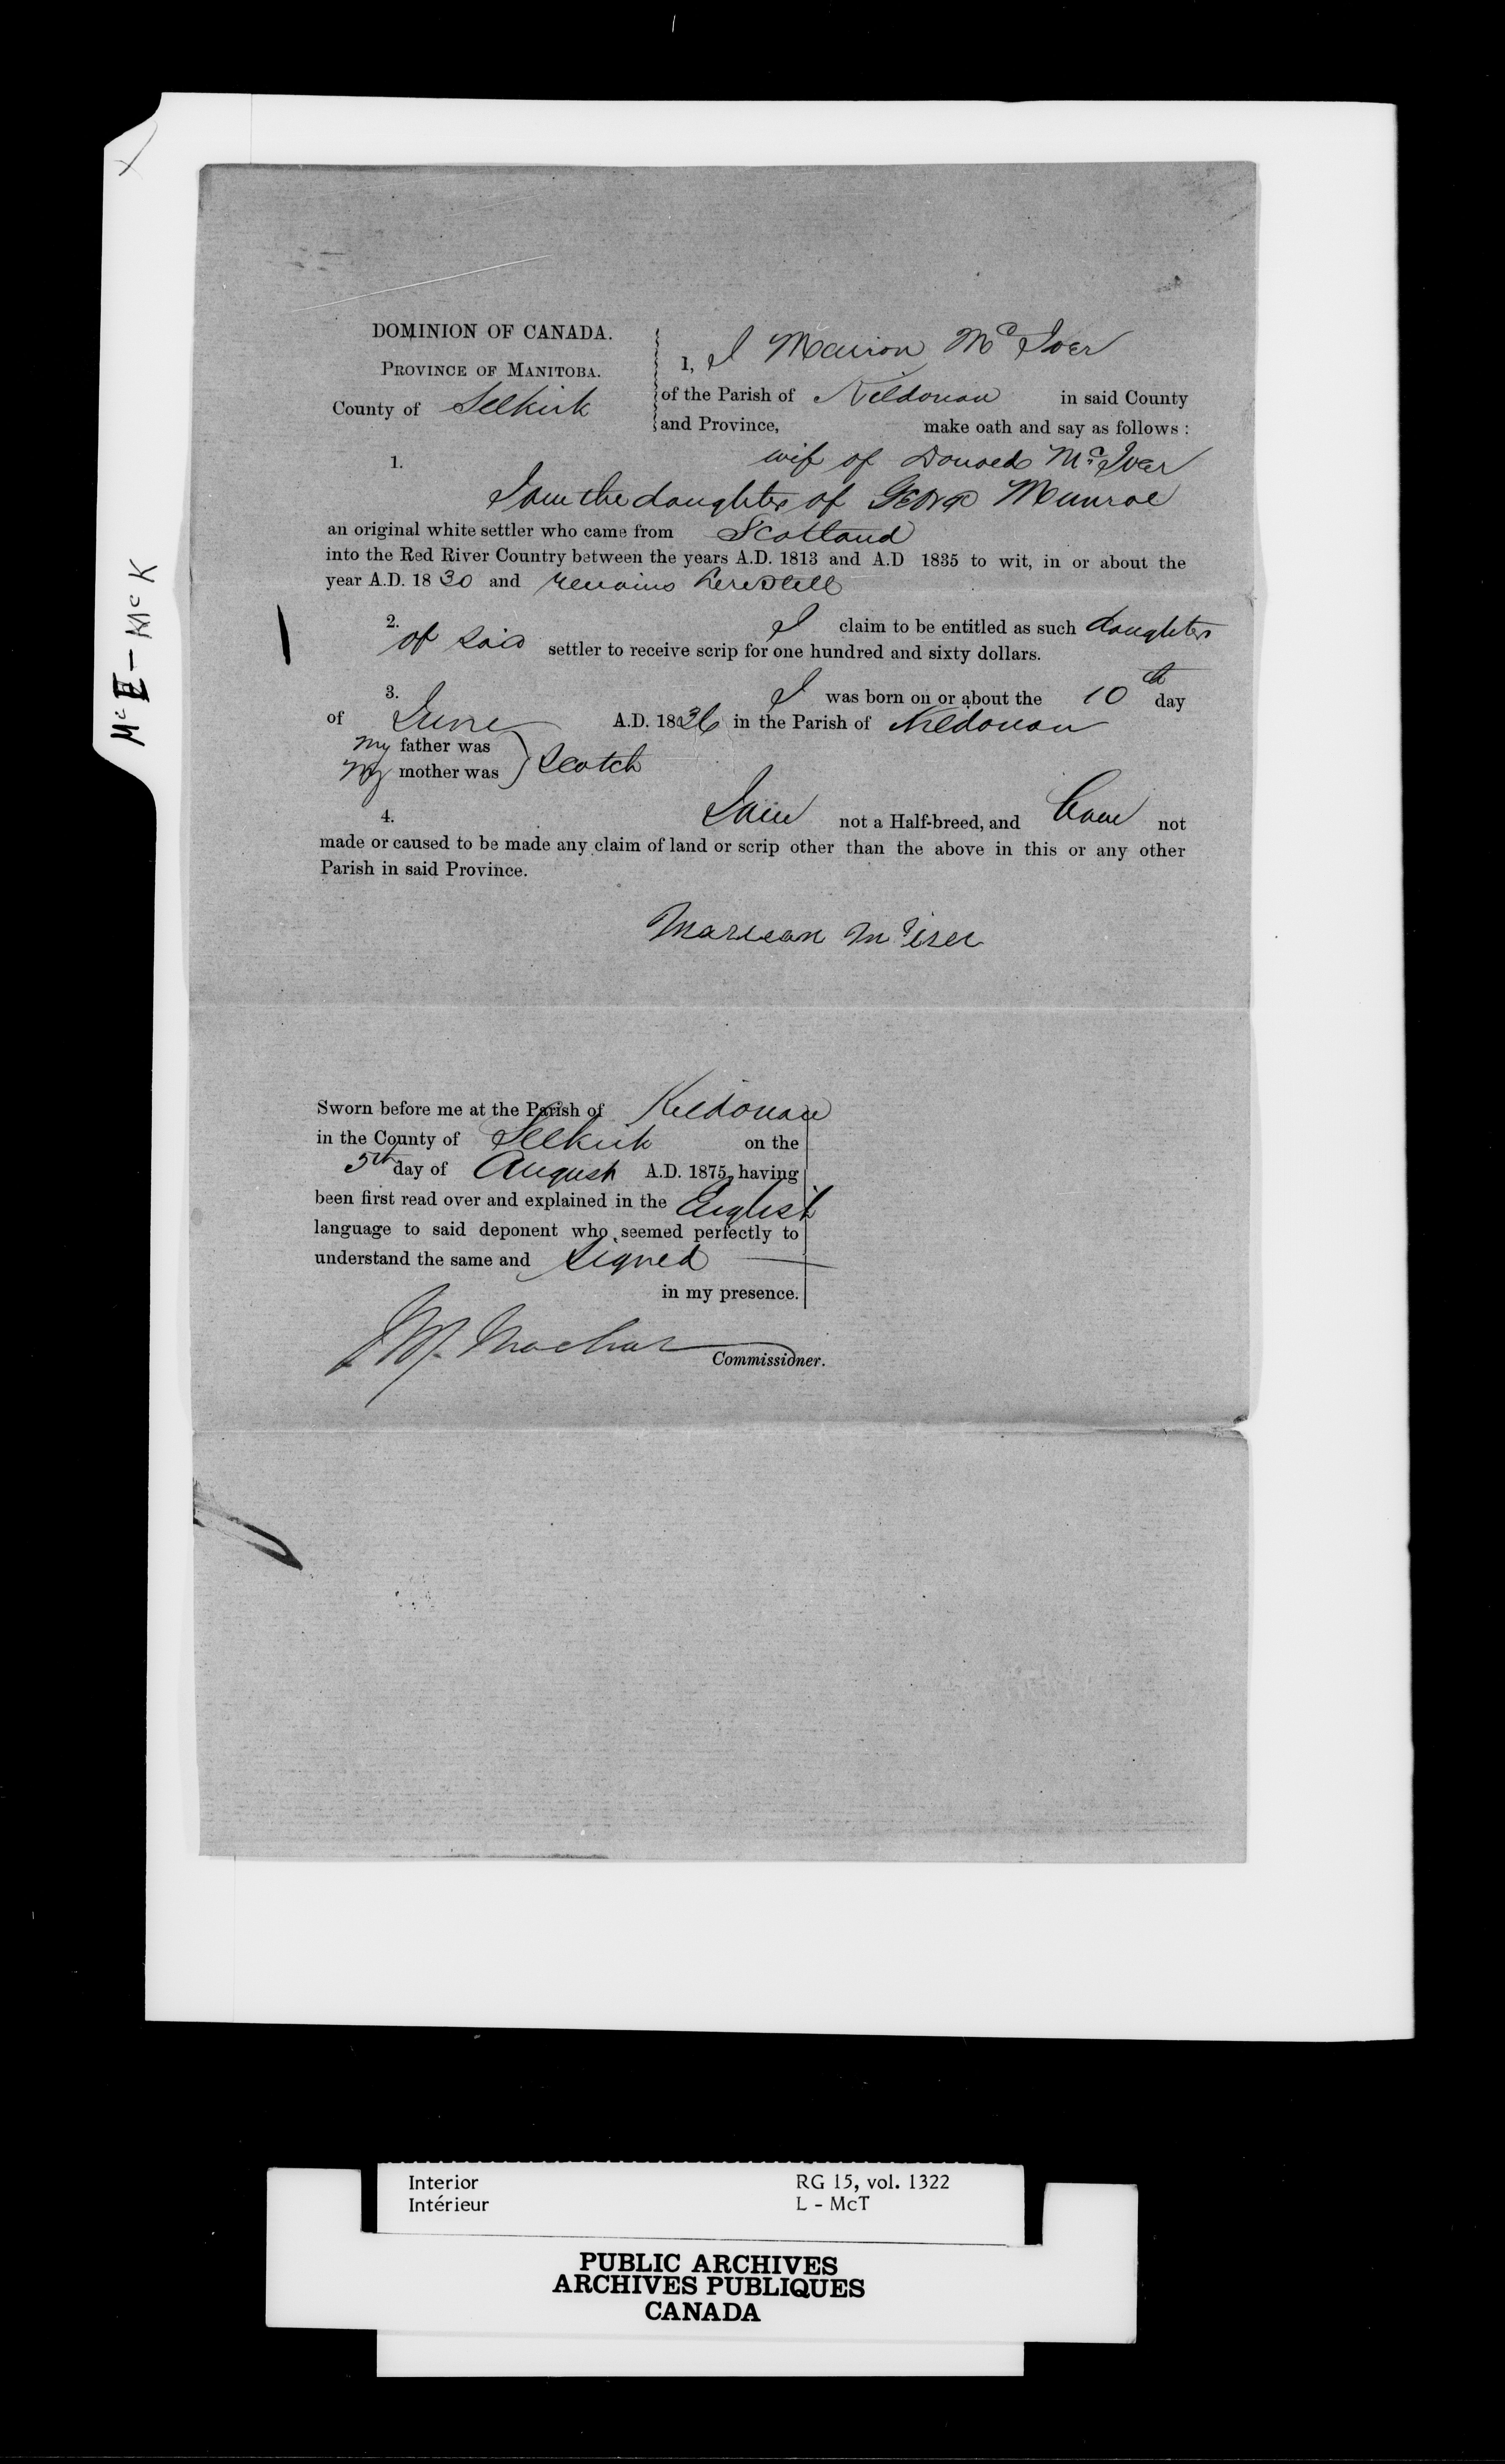 DOMINION OF CANADA.
PROVINCE OF MANITOBA.
County of Selkirk
1, I Marion Mc Iver
of the Parish of Kildonan in said County
and Province, make oath and say as follows :
1. wife of Donald Mc Iver
I am the daughter of George Munroe
an original white settler who came from Scotland
into the Red River Country between the years A.D. 1813 and A.D 1835 to wit, in or about the
year A.D. 18 30 and remains here still
2. I claim to be entitled as such daughter
of said settler to receive scrip for one hundred and sixty dollars.
3. I was born on or about the 10th day
of June A.D. 1836 in the Parish of Kildonan
My father was
My mother was } Scotch
4. I am not a Half-breed, and have not
made or caused to be made any claim of land or scrip other than the above in this or any other
Parish in said Province.
Marian Mc iver
Sworn before me at the Parish of Kildonan
in the County of Selkirk on the
5th day of August A.D. 1875, having
been first read over and explained in the English
language to said deponent who seemed perfectly to
understand the same and signed
in my presence.
J M. Machar
Commissioner.
Mc I - Mc K
Interior RG 15, vol. 1322
Intérieur L - McT
PUBLIC ARCHIVES
ARCHIVES PUBLIQUES
CANADA